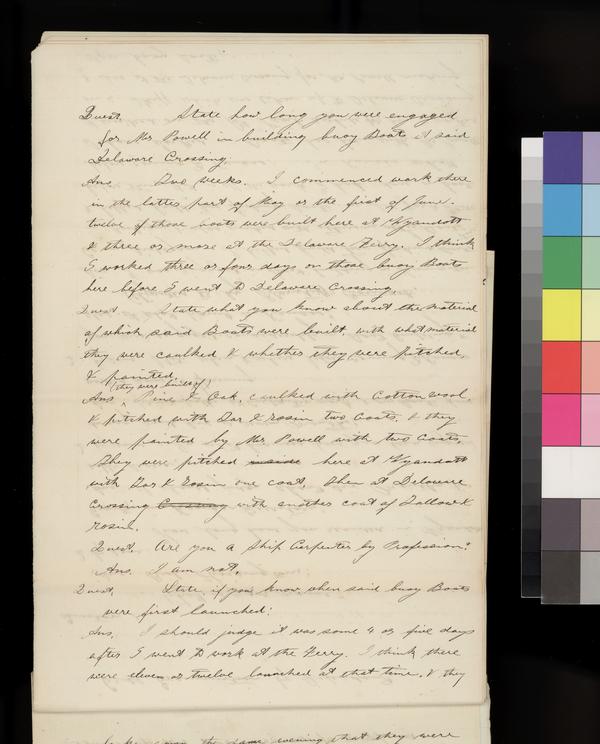 Quest. State how long you were engaged
for Mr Powell in building buoy Boats at said
Delaware Crossing.
Ans Two weeks. I commenced work there
in the latter part of May or the first of June.
twelve of those boats were built here at Wyandott
& three or more at the Delaware Ferry. I think
I worked three or four days on those buoy Boats
here before I went to Delaware Crossing.
Quest State what you know about the material
of which said Boats were built, with what material
they were caulked & whether they were pitched,
& painted.
(they were built of)
Ans, Pine & Oak, caulked with Cotton wool,
& pitched with Tar & rosin two Coats, & they
were painted by Mr. Powell with two Coats,
They were pitched inside here at Wyandott
with Tar & rosin one coat, then at Delaware
Crossing Crossing with another coat of Tallow &
rosin.
Quest. Are you a Ship Carpenter by Profession?
Ans. I am not.
Quest. State, if you know, when said buoy Boats
were first launched:
Ans. I should judge it was some 4 or five days
after I went to work at the Ferry. I think there
were eleven or twelve launched at that time, & they
the same evening that they were